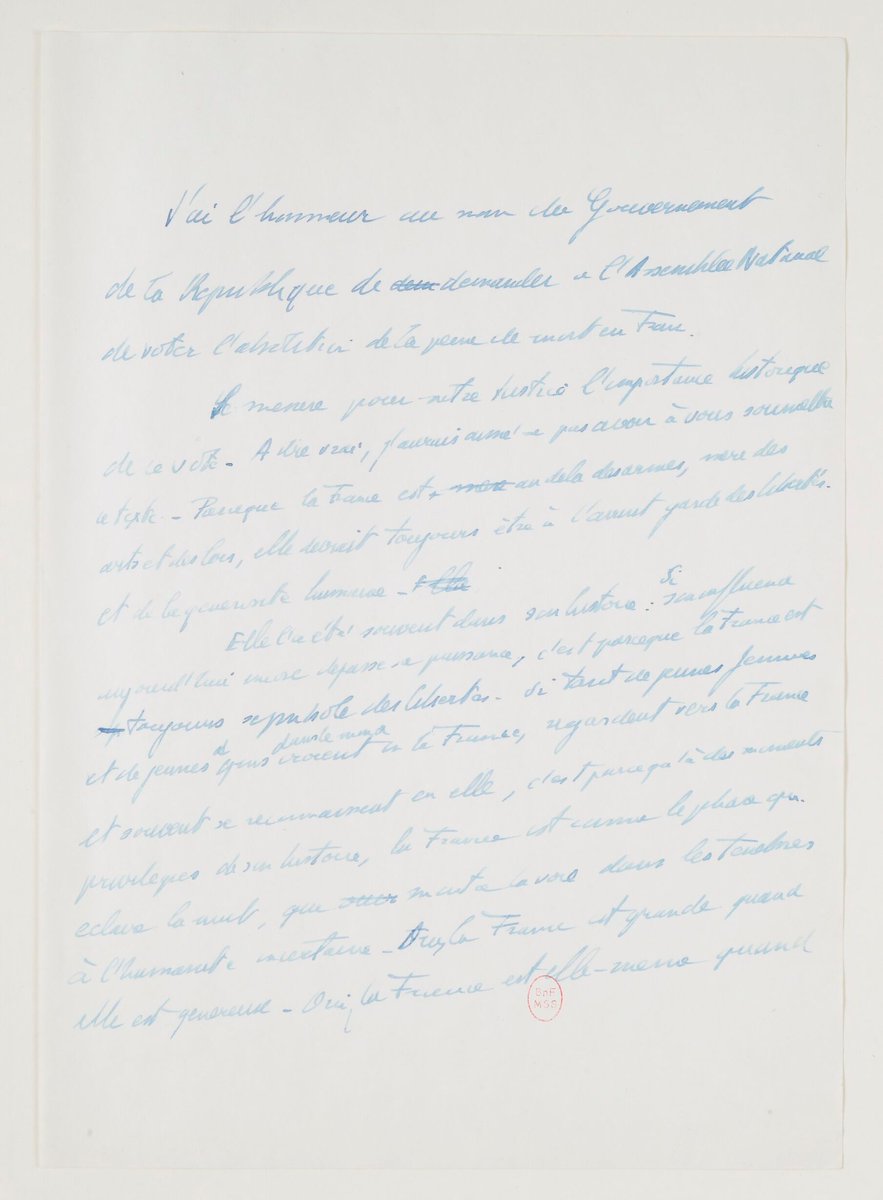 J'ai l'honneur au nom du Gouvernement
de la République de deman demander à l'Assemblée Nationale
de voter l'abolition de la peine de mort en France.
Je mesure pour notre Justice l'importance historique
de ce vote - A dire vrai, j'aurais aimé ne pas avoir à vous soumettre
ce texte - Parce que la France est, mere au dela des armes, mère des
arts et des lois, elle devrait toujours être à l'avant garde des libertés
et de la generosité humaine - Elle
Elle l'a été souvent dans son histoire : Si son influence
aujourd'hui encore depasse sa puissance, c'est parceque la France est
toujours symbole des libertés - Si tant de jeunes femmes
et de jeunes gens dans le monde croient en la France, regardent vers la France
et souvent se reconnaissent en elle, c'est parcequ'à des moments
privilégiés de son histoire, la France est comme le phare qui
eclaire la nuit, qui montre la voie dans les tenebres
à l'humanité incertaine - Oui, la France est grande quand
elle est genereuse - Oui, la France est elle-meme quand
BnF
MSS